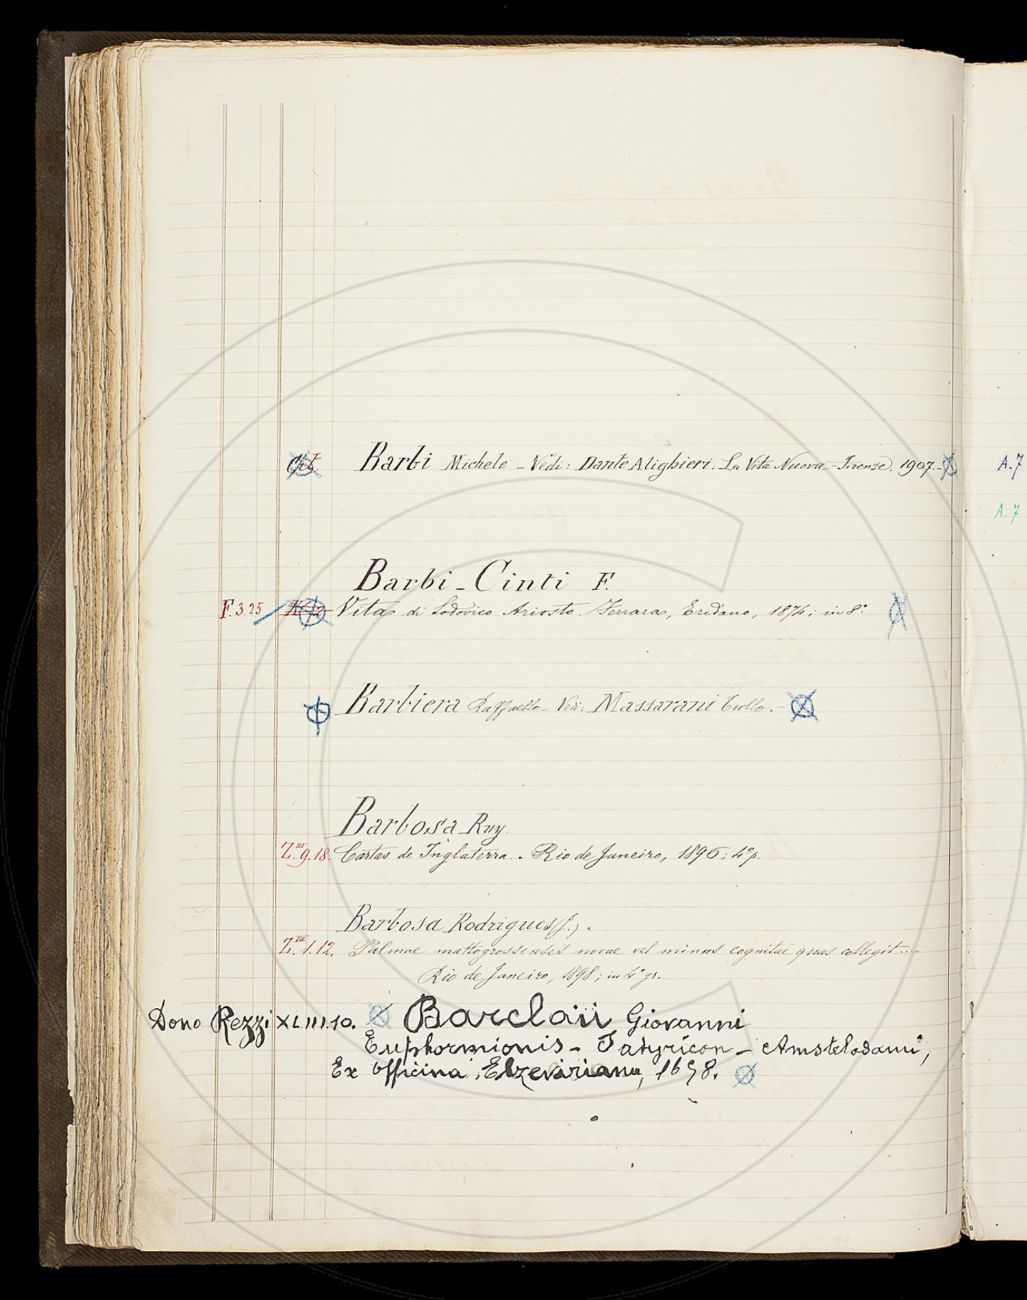 Barbi Michele - Vedi: Dante Alighieri. La Vita Nuova - Firenze. 1907.-
A.7
A.7
Barbi - Cinti F.
F.3.25 Vita di Lodovico Ariosto. Ferrara, Eridano, 1874; in 8°
Barbiera Raffaello - Ved: Massarani Tullo.-
Barbosa Ruy.
Z.III.9.18. Cartas de Inglaterra. - Rio de Janeiro, 1896; 4° p.
Barbosa Rodrigues (J.).
Z.III.1.12. Palmae mattogrossenses novae vel minus cognitae quas collegit....
Rio de Janeiro, 1898; in 4° gr.
Dono Rezzi XLIII.10. Barclaii Giovanni
Euphormionis - Satyricon - Amstelodami,
Ex Officina, Elzeviriana, 1658.